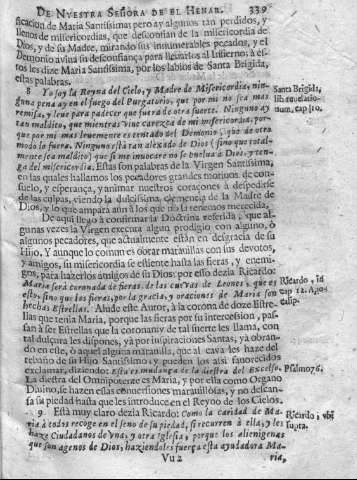 DE NVESTRA SEÑORA DE EL HENAR. 339
ficacion de Maria Santissima pero ay algunos tan perdidos, y
llenos de misericordias, que desconfian de la misericordia de
Dios, y de su Madre, mirando sus innumerables pecados, y el
Demonio aviva su desconfiança para llevarlos al Infierno: à es-
tos les dize Maria Santissima, por los labios de Santa Brigida,
estas palabras.
8 Yo soy la Reyna del Cielo, y Madre de Misericordia, nin-
guna pena ay en el fuego del Purgatorio, que por mi no sea mas
remisa, y leve para padecer que fuera de otra suerte. Ninguno ay
tan maldito, que mientras vive carezca de mi misericordia, por-
que por mi mas levemente es tentado del Demonio, que de otro
modo lo fuera. Ninguno està tan alexado de Dios (sino que total-
mente sea maldito) que si me invocare no se buelva à Dios, y ten-
ga del misericordia. Estas son palabras de la Virgen Santissima,
en las quales hallamos los pecadores grandes motivos de con-
suelo, y esperança, y animar nuestros coraçones à despedirse
de las culpas, viendo la dulcissima clemencia de la Madre de
Dios, y lo que ampara aun à los que no la tenemos merecida.
Santa Brigida,
lib. revelatio-
num, cap. 10.
De aqui llego à confirmar la Doctrina referida, que al-
gunas vezes la Virgen executa algun prodigio con alguno, ò
algunos pecadores, que actualmente estàn en desgracia de su
Hijo, Y aunque lo comun es obrar maravillas con sus devotos,
y amigos, su misericordia se estiende hasta las fieras, y enemi-
gos, para hazerlos amigos de su Dios: por esso dezia Ricardo:
Maria serà coronada de fieras, de las cuevas de Leones, que es
esto, sino que las fieras, por la gracia, y oraciones de Maria son
hechas Estrellas. Alude este Autor, à la corona de doze Estre-
llas que tenia Maria, porque las fieras por su intercession, pas-
san à ser Estrellas que la coronan y de tal suerte les llama, con
tal dulçura les dispone, yà por inspiraciones Santas, yà obran-
do en este, ò aquel alguna maravilla, que al cava les haze del
rebaño de su Hijo Santissimo; y pueden los assi favorecidos
exclamar, diziendo: Esta es mudança de la diestra del Excelso.
La diestra del Omnipotente es Maria, y por ella como Organo
Divino, se hazen estas conversiones maravillosas, y no descan-
sa su piedad hasta que les introduce en el Reyno de los Cielos.
Ricardo, in
cap. 12. Apoc
Psalmo 76.
9 Està muy claro dezia Ricardo: Como la caridad de Ma-
ria à todos recoge en el seno de su piedad, si recurren à ella, y les
haze Ciudadanos de vna, y otra Iglesia, porque los alienigenas
que son agenos de Dios, haziendoles fuerça esta ayudadora Ma-
Ricardo, vbi
supra.
Vu 2 ria,